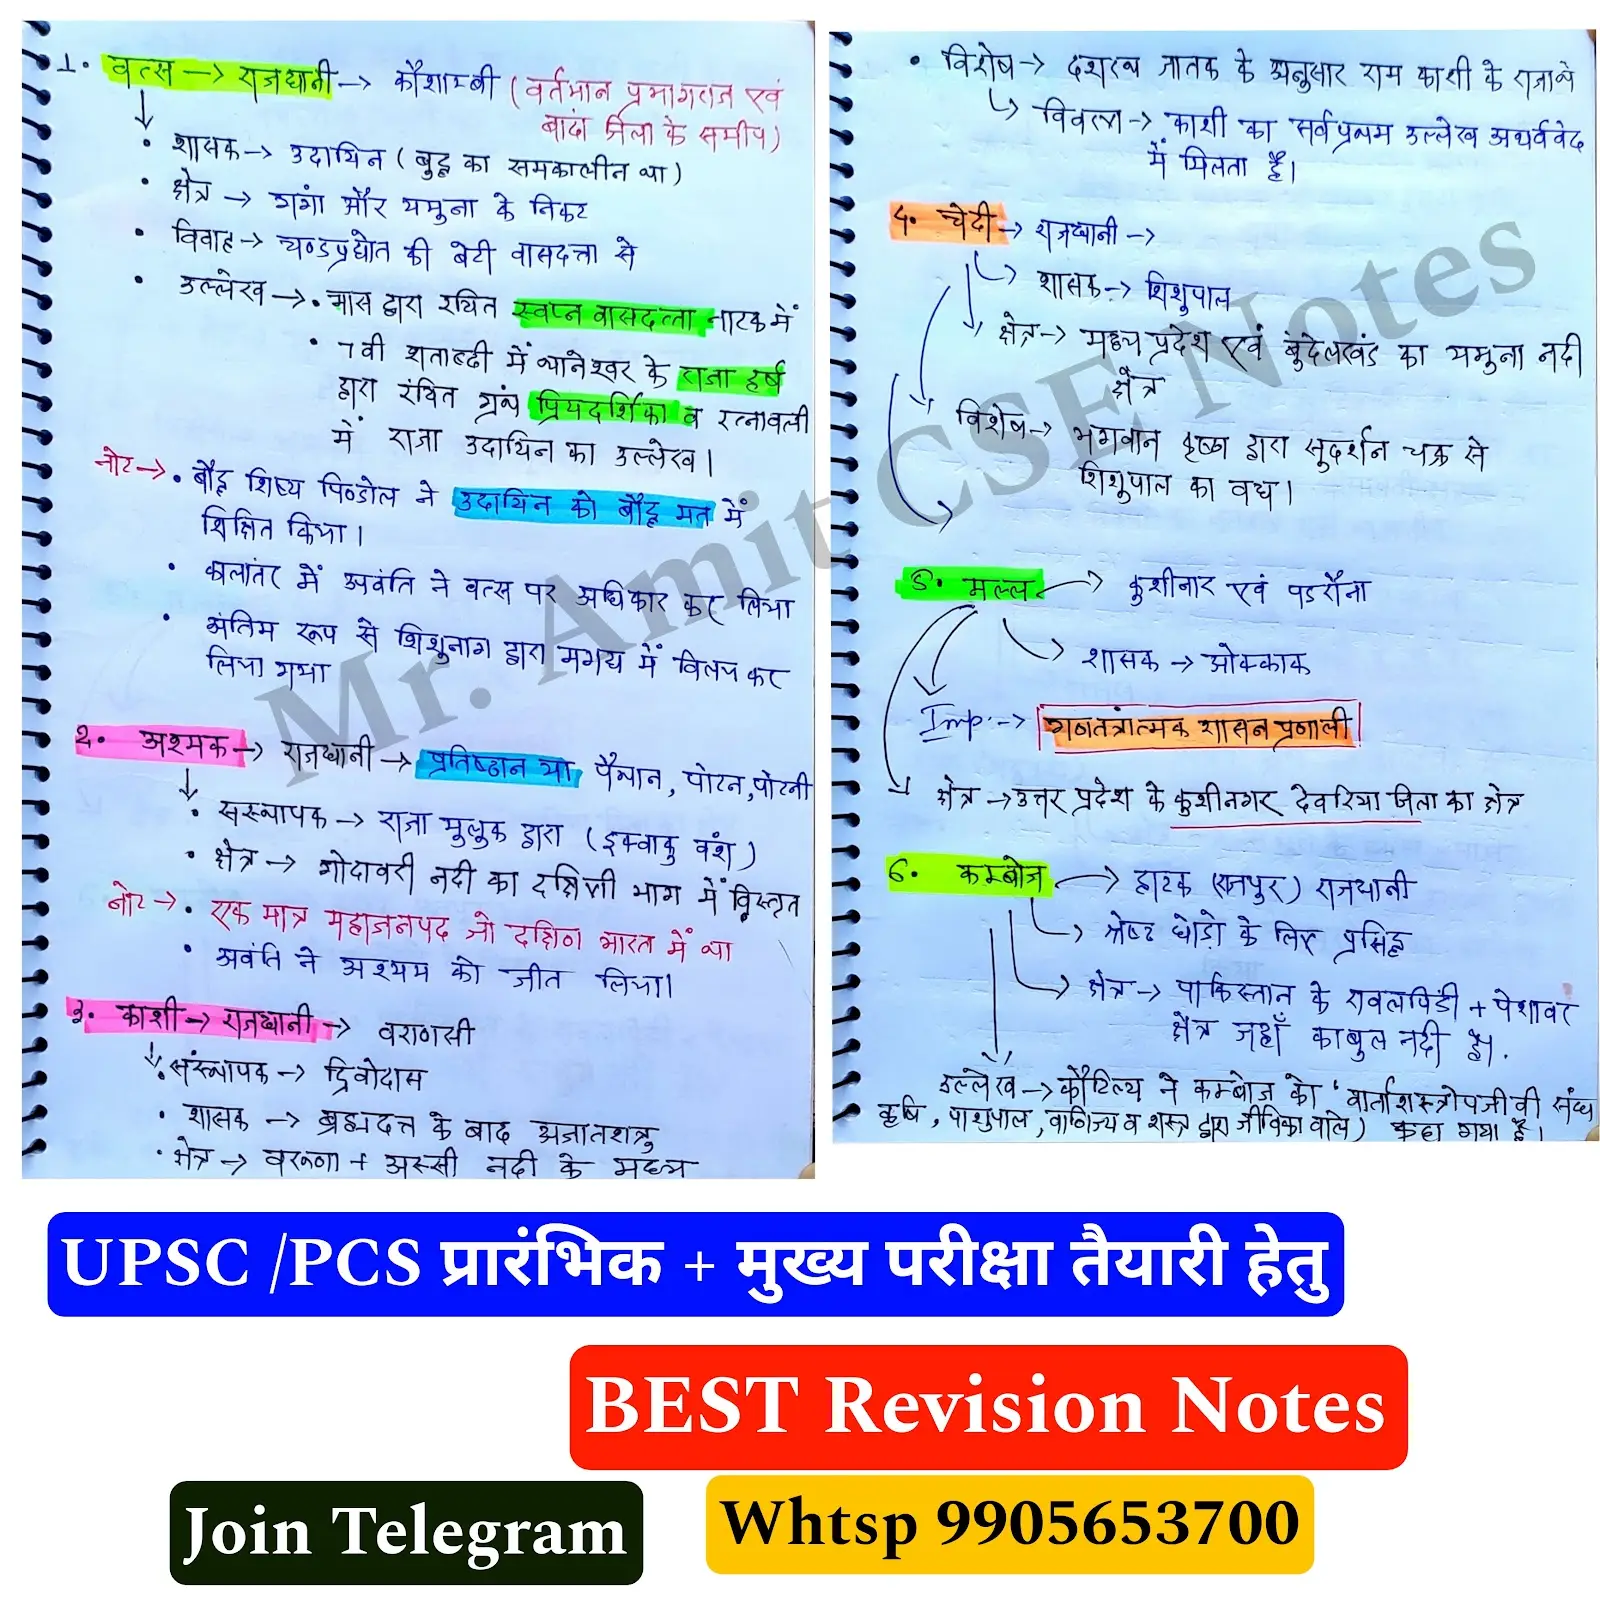 1. वत्स → राजधानी → कौशाम्बी (वर्तमान प्रयागराज एवं
बांदा जिला के समीप)
• शासक → उदायिन (बुद्ध का समकालीन था)
• क्षेत्र → गंगा और यमुना के निकट
• विवाह → चण्डप्रद्योत की बेटी वासदत्ता से
• उल्लेख → • भास द्वारा रचित स्वप्न वासदत्ता नाटक में
• 7वी शताब्दी में थानेश्वर के राजा हर्ष
द्वारा रचित ग्रंथ प्रियदर्शिका व रत्नावली
में राजा उदायिन का उल्लेख।
नोट → • बौद्ध शिष्य पिण्डोल ने उदायिन को बौद्ध मत में
शिक्षित किया।
• कालांतर में अवंति ने वत्स पर अधिकार कर लिया
• अंतिम रूप से शिशुनाग द्वारा मगध में विलय कर
लिया गया
2. अश्मक → राजधानी → प्रतिष्ठान या पैथान, पोटन, पोटनी
• संस्थापक → राजा मुलुक द्वारा (इक्वाकु वंश)
• क्षेत्र → गोदावरी नदी का दक्षिणी भाग में विस्तृत
नोट → • एक मात्र महाजनपद जो दक्षिण भारत में था
• अवंति ने अश्मम को जीत लिया।
3. काशी → राजधानी → वराणसी
• संस्थापक → द्रिवोदास
• शासक → ब्रह्मदत्त के बाद अजातशत्रु
• क्षेत्र → वरूणा + अस्सी नदी के मध्य
• विशेष → दशरथ जातक के अनुसार राम काशी के राजा थे
विवरण → काशी का सर्वप्रथम उल्लेख अथर्ववेद
में मिलता है।
4. चेदी → राजधानी →
शासक → शिशुपाल
क्षेत्र → मध्य प्रदेश एवं बुंदेलखंड का यमुना नदी
क्षेत्र
विशेष → भगवान कृष्ण द्वारा सुदर्शन चक्र से
शिशुपाल का वध।
5. मल्ल → कुशीनार एवं पडरौना
शासक → ओक्काक
Imp. → गणतंत्रात्मक शासन प्रणाली
क्षेत्र → उत्तर प्रदेश के कुशीनगर देवरिया जिला का क्षेत्र
6. कम्बोज → हाटक (राजपुर) राजधानी
→ श्रेष्ट घोड़ो के लिए प्रसिद्ध
→ क्षेत्र → पाकिस्तान के रावलपिंडी + पेशावर
क्षेत्र जहाँ काबुल नदी है।
उल्लेख → कौटिल्य ने कम्बोज को 'वार्ताशस्त्रोपजीवी संघ
कृषि, पाशुपाल, वाणिज्य व शस्त्र द्वारा जीविका वाले) कहा गया है।
Mr. Amit CSE Notes
UPSC /PCS प्रारंभिक + मुख्य परीक्षा तैयारी हेतु
BEST Revision Notes
Join Telegram
Whtsp 9905653700